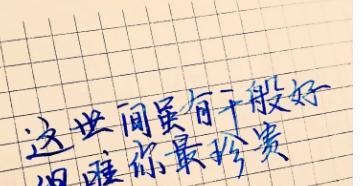 这世间虽有千般好
唯你最珍贵